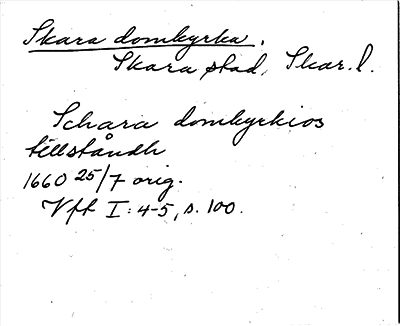 Skara domkyrka.
Skara stad, Skar. l.
Schara domkyrkios
tillståndh
1660 25/7 orig.
Vft I: 4-5, s. 100.